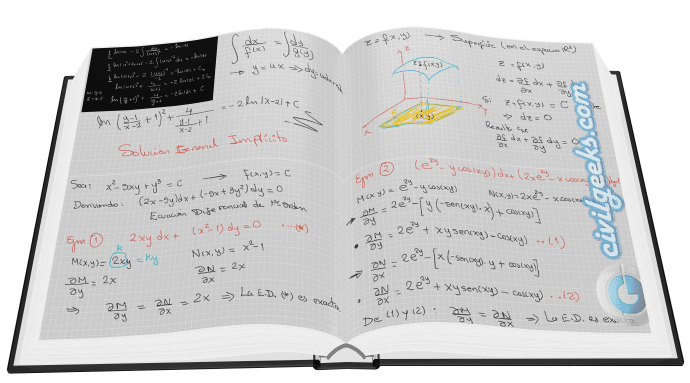 ∫ dx/f(x) = ∫ dy/g(y)
→ y = ux ⇒ dy=udx
ln ((y-1)/(x-2) + 1)² + 4/((y-1)/(x-2) + 1) = -2 ln|x-2| + C
Solución General Implícita
Sea: x² - 5xy + y³ = C → f(x,y) = C
Derivando: (2x-5y)dx + (-5x+3y²)dy = 0
Ecuación Diferencial de 1er Orden
Ejm 1 2xy dx + (x²-1) dy = 0 ...(*)
K
M(x,y) = 2xy = Ky N(x,y) = x²-1
∂M/∂y = 2x ∂N/∂x = 2x
⇒ ∂M/∂y = ∂N/∂x = 2x ⇒ La E.D. (*) es exacta
z = f(x,y) → Superficie (en el espacio R³)
z = f(x,y)
z = f(x,y)
dz = ∂f/∂x dx + ∂f/∂y
Si z = f(x,y) = C
⇒ dz = 0
(x,y)
x
y
z
∂f/∂x dx + ∂f/∂y dy = 0
Ejm 2 (e^2y - y cos(xy)) dx + (2xe^2y - x cos(xy)
M(x,y) = e^2y - y cos(xy) N(x,y) = 2xe^2y - x cos(xy
∂M/∂y = 2e^2y - [y(-sen(xy).x) + cos(xy)]
∂M/∂y = 2e^2y + xy sen(xy) - cos(xy) ..(1)
∂N/∂x = 2e^2y - [x(-sen(xy).y + cos(xy)]
∂N/∂x = 2e^2y + xy sen(xy) - cos(xy) ..(2)
De (1) y (2): ∂M/∂y = ∂N/∂x ⇒ La E.D. es
civilgeeks.com